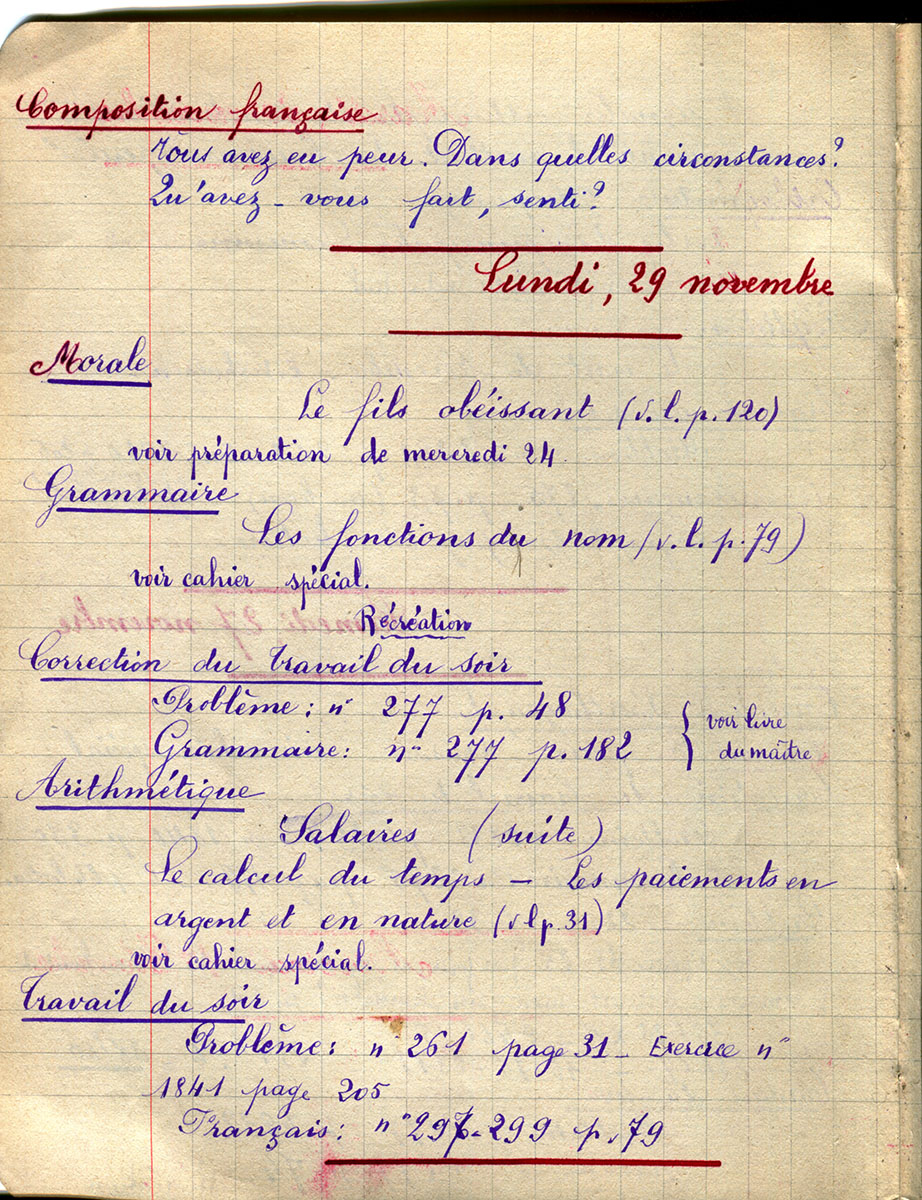 Composition française
Vous avez eu peur. Dans quelles circonstances?
Qu'avez-vous fait, senti?
Lundi, 29 novembre
Morale
Le fils obéissant (v.l.p.120)
voir préparation de mercredi 24
Grammaire
Les fonctions du nom (v.l.p.79)
voir cahier spécial.
Récréation
Correction du travail du soir
Problème: n° 277 p. 48
Grammaire: n° 277 p. 182
voir livre
du maître
Arithmétique
Salaires (suite)
Le calcul du temps – Les paiements en
argent et en nature (v l p. 31)
voir cahier spécial.
Travail du soir
Problème: n° 261 page 31 – Exercice n°
1841 page 205
Français: n° 297-299 p. 79